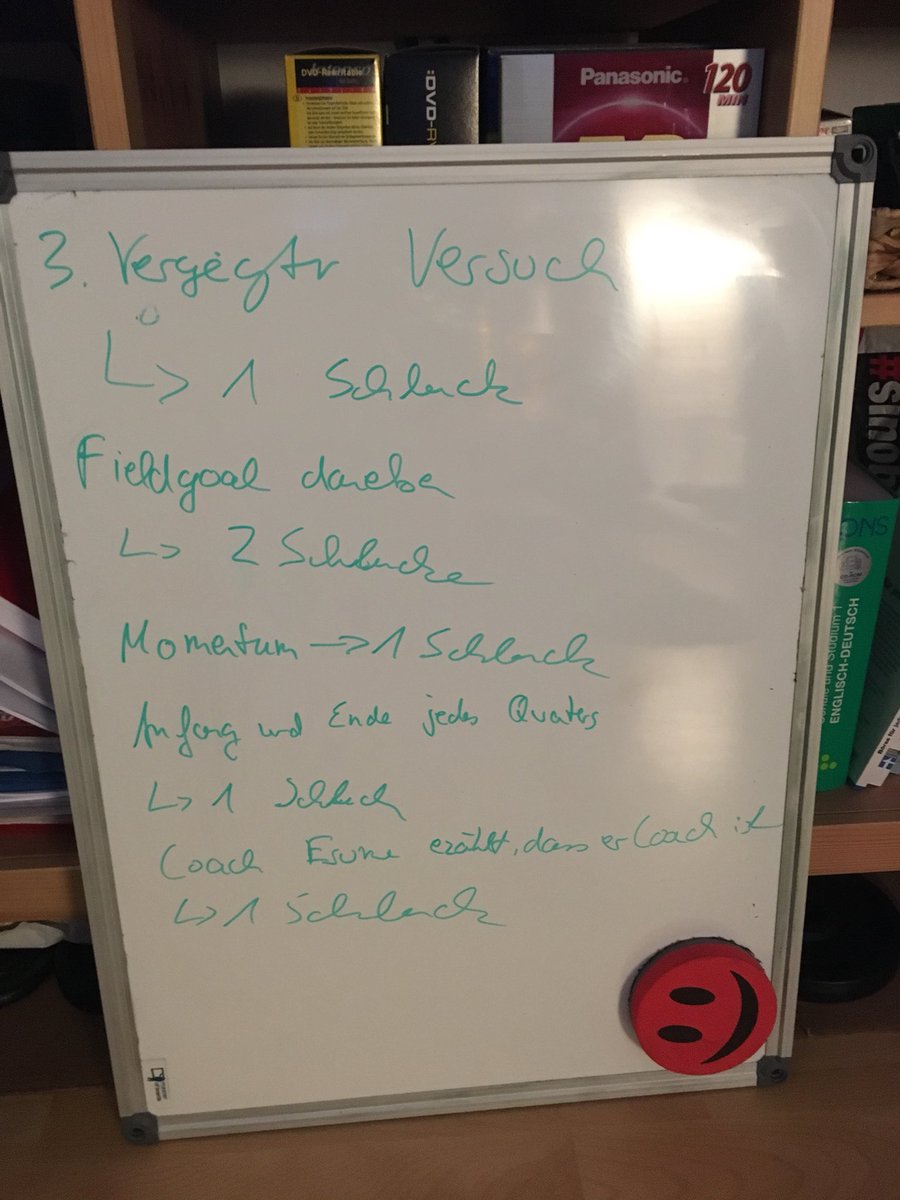 DVD-Rewritable
:DVD-R
Panasonic
120
MIN
3. Vergeigter Versuch
↳ 1 Schluck
Fieldgoal daneben
↳ 2 Schlucke
Momentum → 1 Schluck
Anfang und Ende jedes Quaters
↳ 1 Schluck
Coach Esume erzählt, dass er Coach ist
↳ 1 Schluck
#Sinof
ONS
Schule und Studium 1
ENGLISCH-DEUTSCH